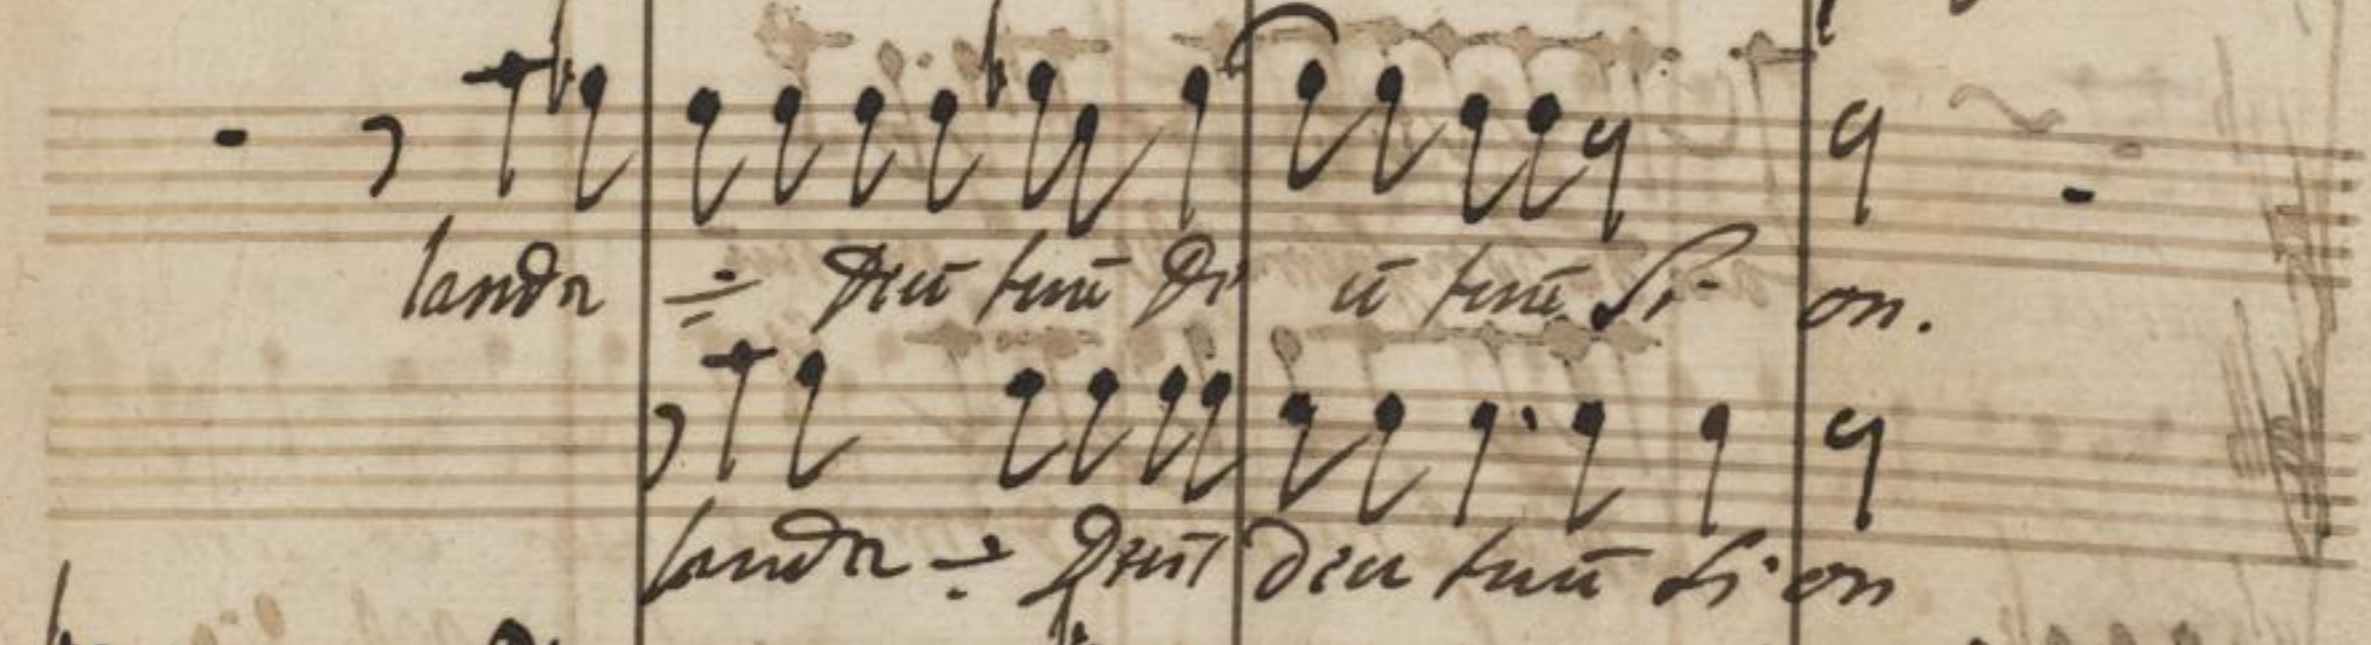 lauda ÷ Deū tuū De ū tuū Si- on.
lauda ÷ Deū Deu tuū Si on